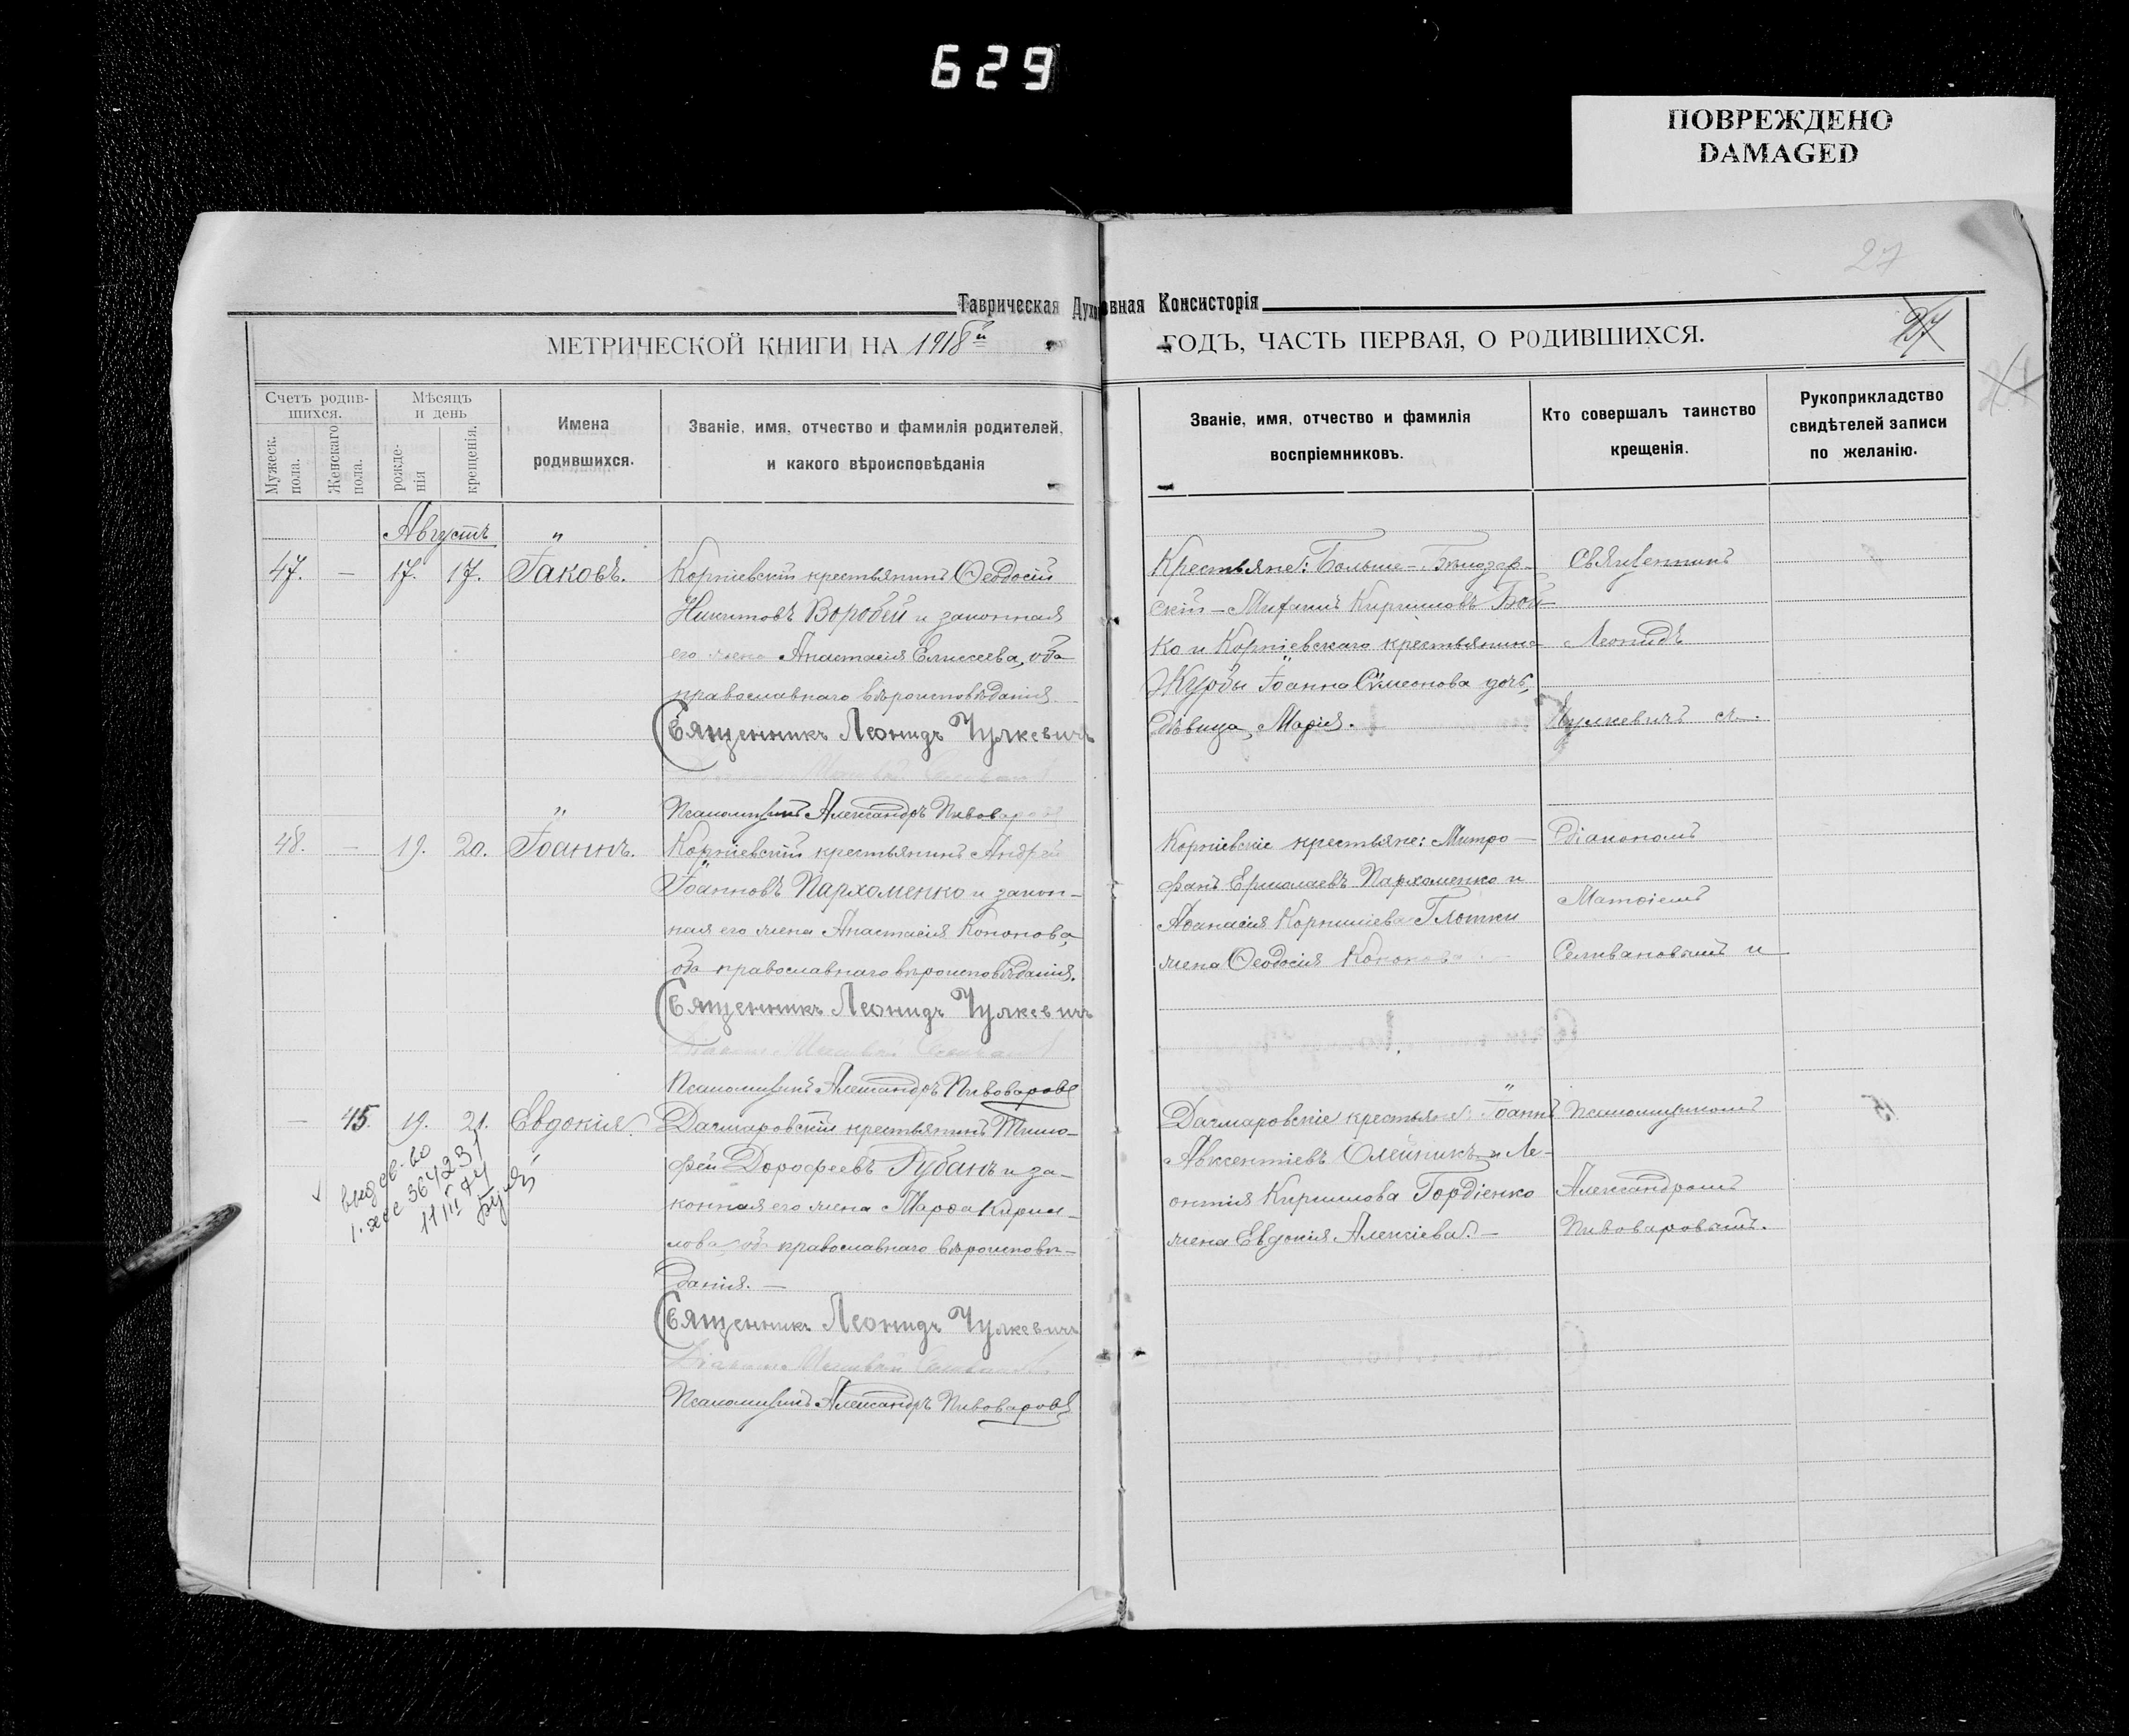 629
ПОВРЕЖДЕНО
DAMAGED
27
Таврическая Духовная Консисторія
МЕТРИЧЕСКОЙ КНИГИ НА 1918й ГОДЪ, ЧАСТЬ ПЕРВАЯ, О РОДИВШИХСЯ.
27
Счетъ родив-
шихся.
Мужеск.
пола.
Женскаго
пола.
Мѣсяцъ
и день
рожде-
нія
крещенія.
Имена
родившихся.
Званіе, имя, отчество и фамилія родителей,
и какого вѣроисповѣданія
Званіе, имя, отчество и фамилія
воспріемниковъ.
Кто совершалъ таинство
крещенія.
Рукоприкладство
свидѣтелей записи
по желанію.
Августъ
47. — 17. 17. Іаковъ.
Корніевскій крестьянинъ Ѳеодосій
Никитовъ Воробей и законная
его жена Анастасія Елисеева, оба
православнаго вѣроисповѣданія.
Священникъ Леонидъ Чулкевичъ
Псаломщикъ Александръ Пивоваровъ
Крестьяне: Больше-Бѣлозер-
скій – Кирилловъ Бой-
ко и Корніевскаго крестьянина
Журбы Іоанна Сѵмеонова дочь,
дѣвица, Марія.
Священникъ
Леонидъ
Чулкевичъ съ
48. — 19. 20. Іоаннъ.
Корніевскій крестьянинъ Андрей
Іоанновъ Пархоменко и закон-
ная его жена Анастасія Кононова,
оба православнаго вѣроисповѣданія.
Священникъ Леонидъ Чулкевичъ
Псаломщикъ Александръ Пивоваровъ
Корніевскіе крестьяне: Митро-
фанъ Ермолаевъ Пархоменко и
Аѳанасія Корниліева Глотки
жена Ѳеодосія Кононова.
діакономъ
Матѳіемъ
Селивановымъ и
— 45. 19. 21. Евдокія.
Дачмаровскій крестьянинъ Тимо-
фей Дорофеевъ Рубанъ и за-
конная его жена Марѳа Кирил-
лова, оба православнаго вѣроисповѣ-
данія. —
Священникъ Леонидъ Чулкевичъ
Псаломщикъ Александръ Пивоваровъ
Дачмаровскіе крестьяне: Іоаннъ
Авксентіевъ Олейникъ и Ле-
онтія Кириллова Гордіенко
жена Евдокія Алексіева. —
Псаломщикомъ
Александромъ
Пивоваровымъ.
364231
11 III 74